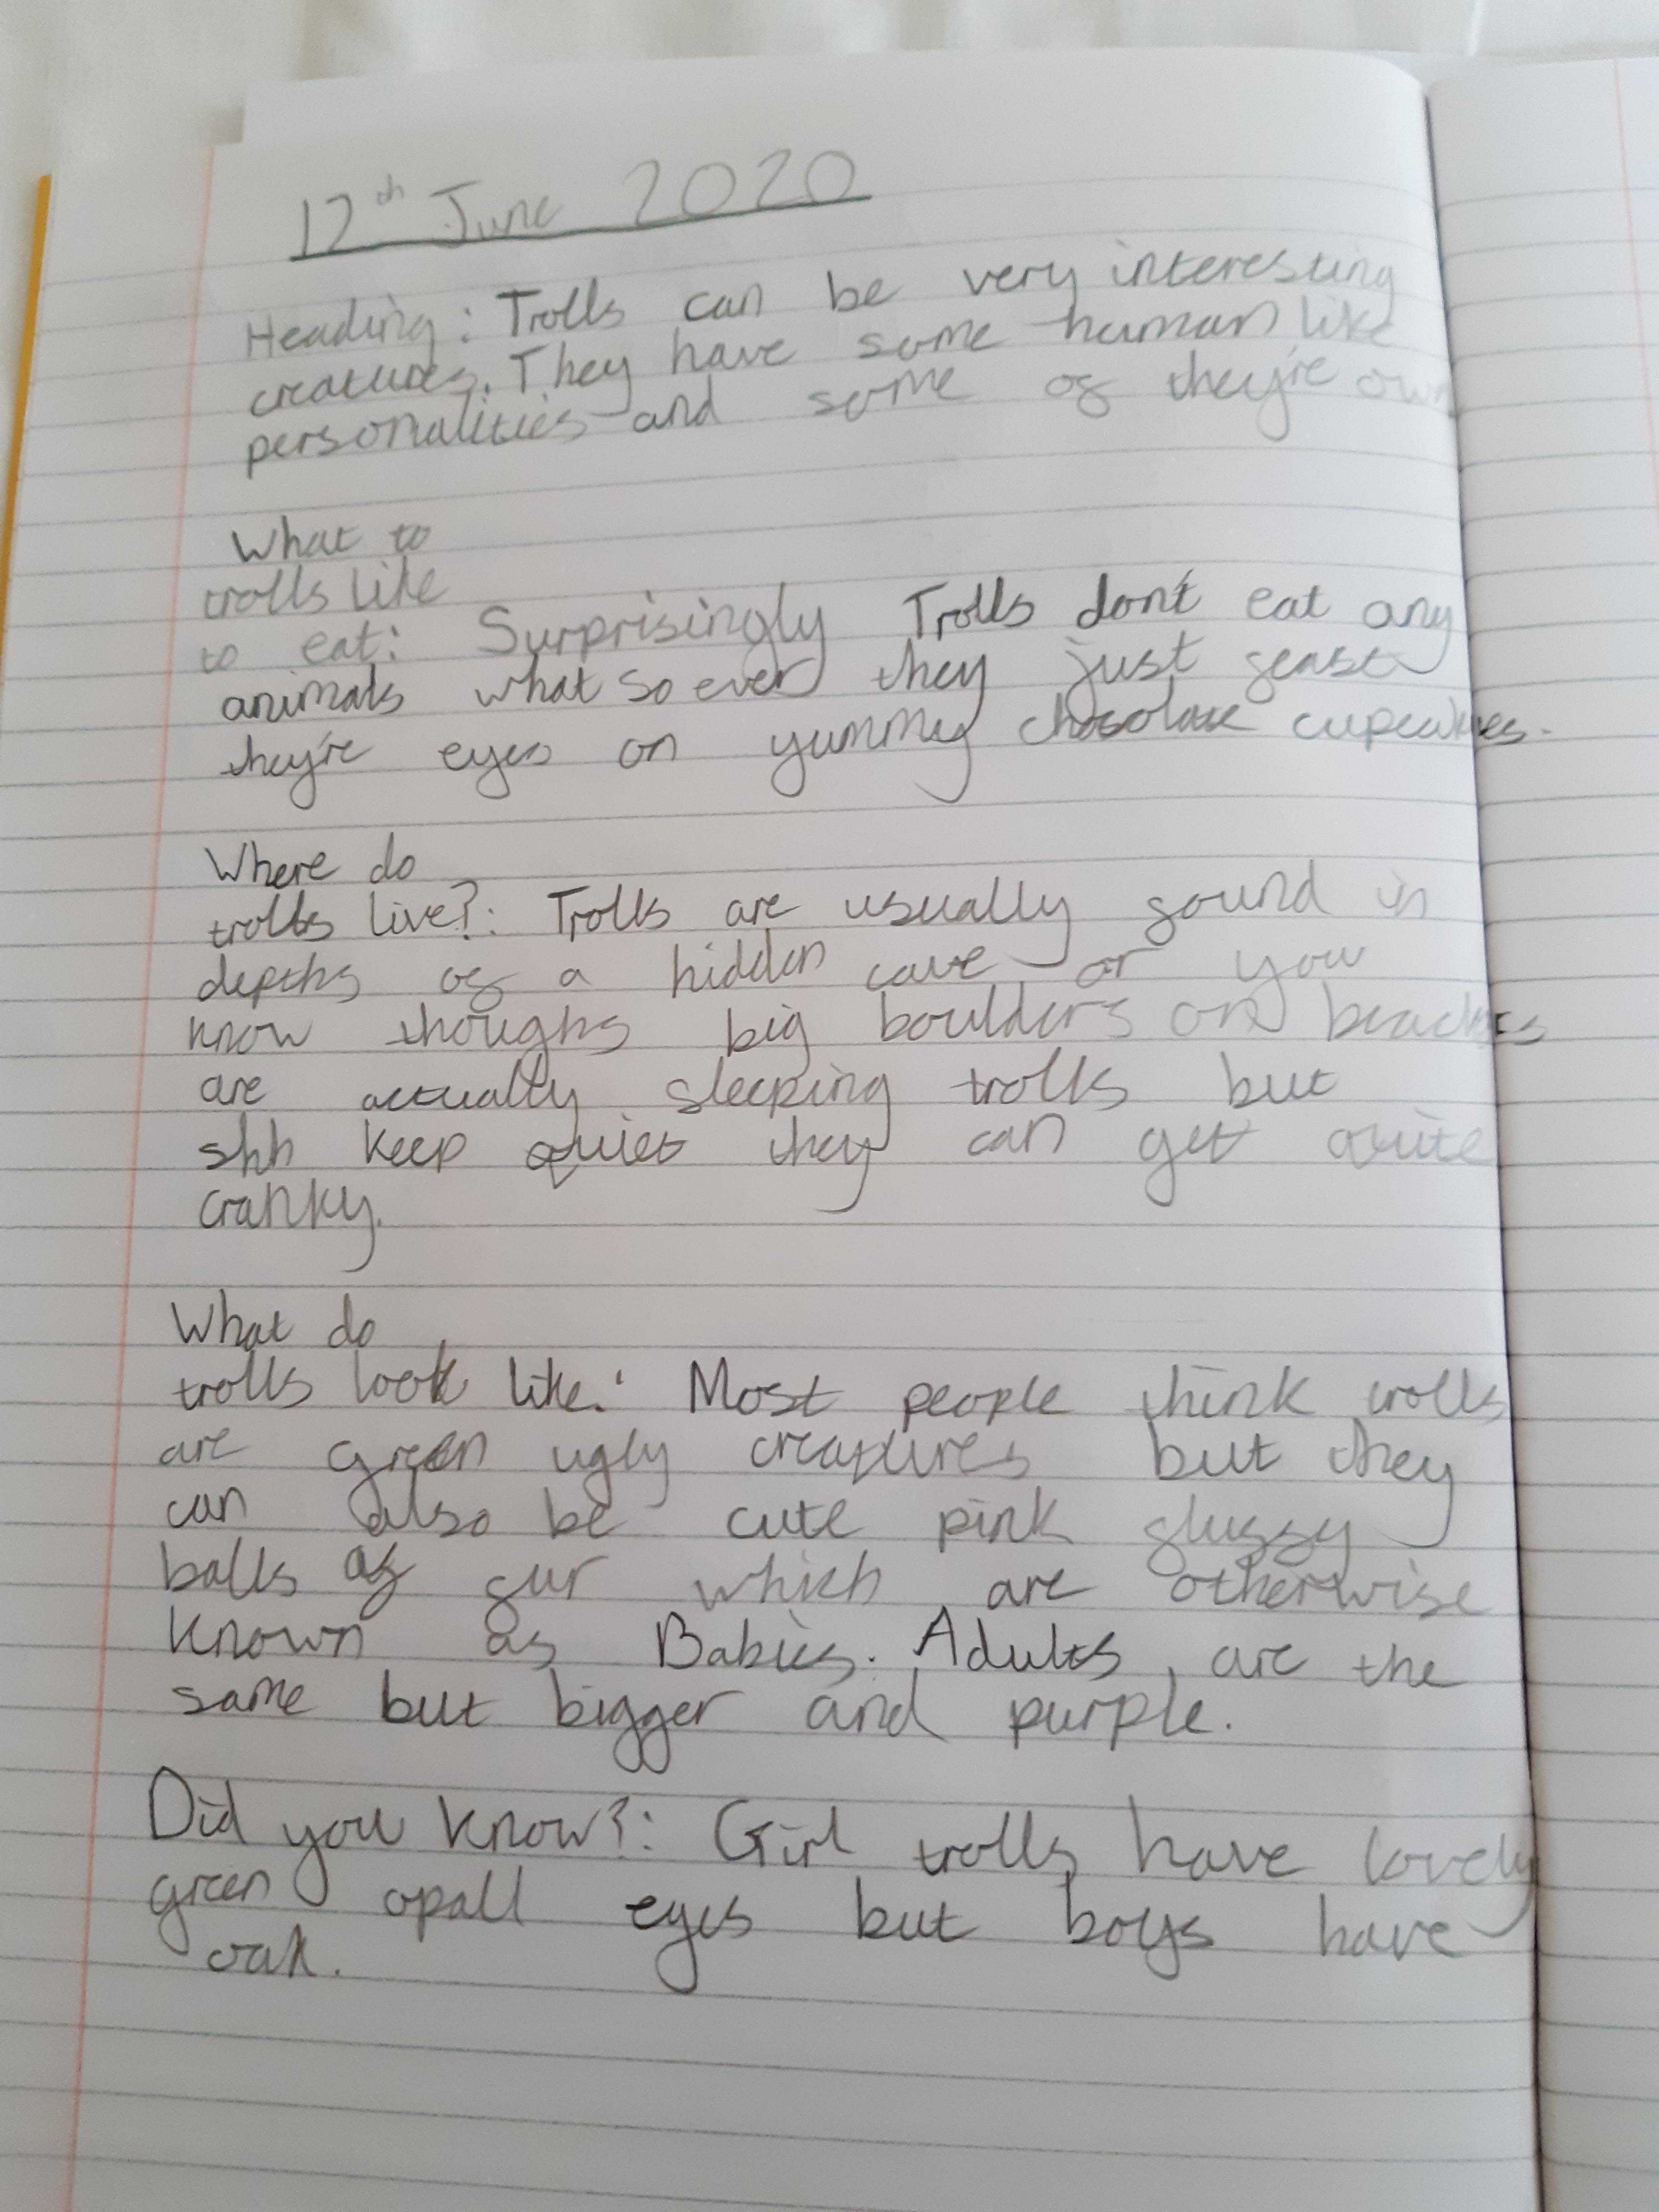 12th June 2020
Heading: Trolls can be very interesting
creatures. They have some human like
personalities and some of they're own
What to
trolls like
to eat: Surprisingly Trolls don't eat any
animals what so ever they just feast
they're eyes on yummy chocolate cupcakes.
Where do
trolls live?: Trolls are usually found in
depths of a hidden cave or you
know thoughs big boulders on beaches
are actually sleeping trolls but
shh keep quiet they can get quite
cranky.
What do
trolls look like: Most people think trolls
are green ugly creatures but they
can also be cute pink fluffy
balls of fur which are otherwise
known as Babies. Adults are the
same but bigger and purple.
Did you know?: Girl trolls have lovely
green opall eyes but boys have
oak.